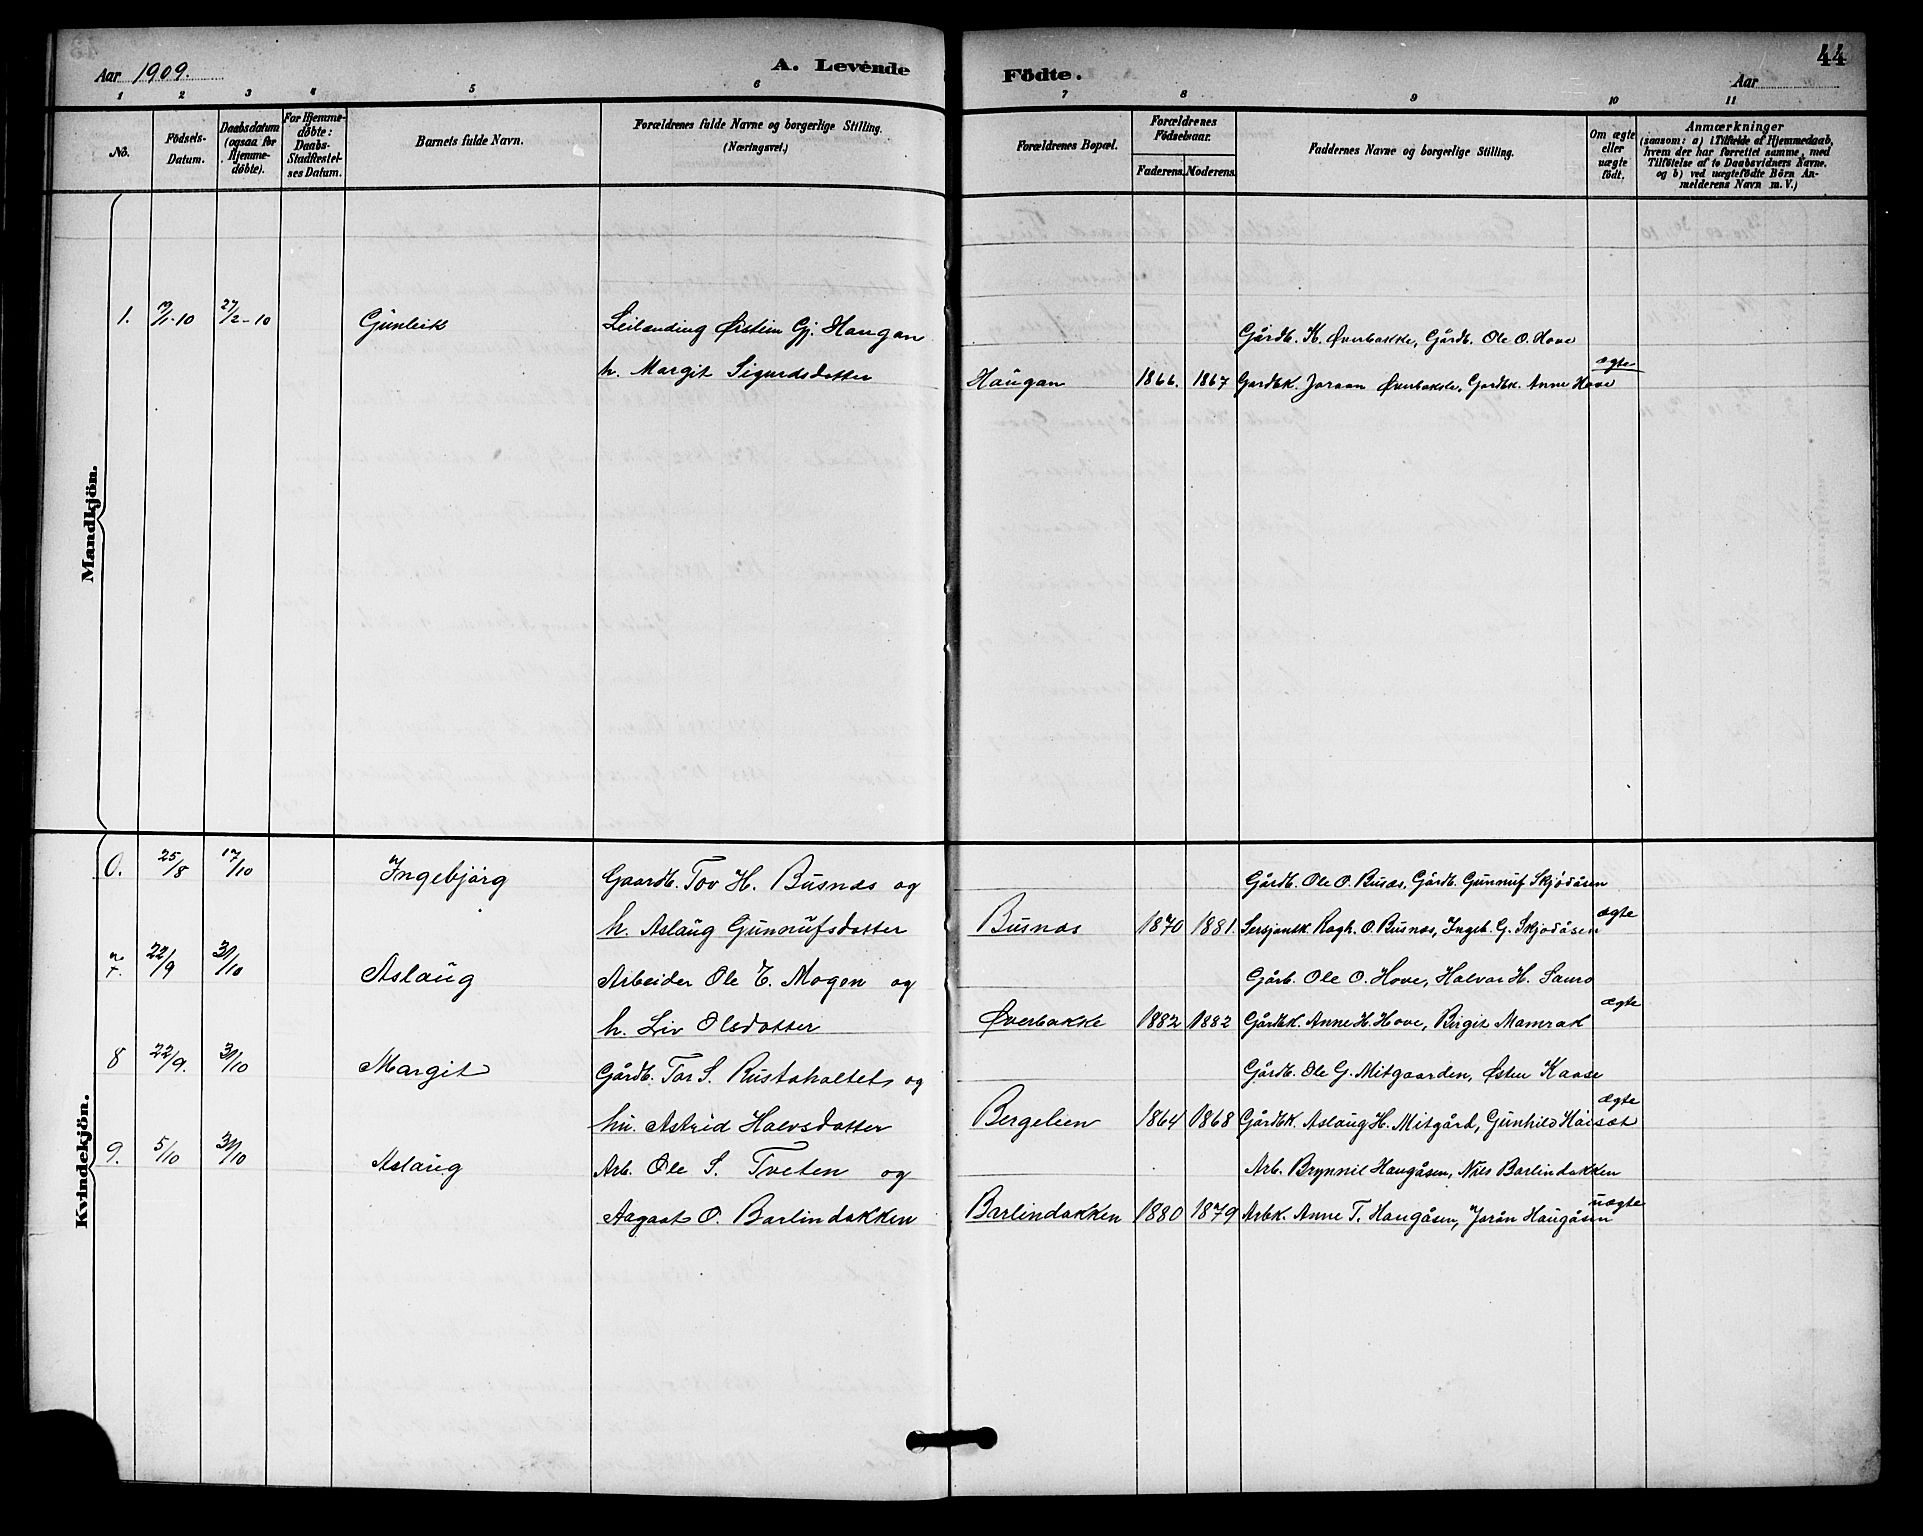 44
Aar 1909.
A. Levende
Födte.
Aar
1 2 3 4 5 6 7 8 9 10 11
No.
Födsels-Datum.
Daabsdatum (ogsaa for Hjemme-døbte).
For Hjemme-døbte: Daabs-Stadfæstel-ses Datum.
Barnets fulde Navn.
Forældrenes fulde Navne og borgerlige Stilling.
(Næringsvei.)
Forældrenes Bopæl.
Forældrenes Födselsaar.
Faderens. Moderens.
Faddernes Navne og borgerlige Stilling.
Om ægte eller uægte født.
Anmærkninger
(saasom: a) i Tilfælde af Hjemmedaab,
hvem der har forrettet samme, med
Tilföielse af to Daabsvidners Navne,
og b) ved uægtefödte Börn An-
melderens Navn m. V.)
Mandkjön.
1. 27/2-10 Gunleik Leilending Østein Gj. Haugan
Gårdb. K. Øverbakke, Gårdb. Ole O. Hove
h. Margit Sigurdsdatter Haugan 1866. 1867 Gardbk. Joraan Øverbakke, Gardbk. Anne Hove ægte
Kvindekjön.
25/8 17/10 Ingebjörg Gaardb. Tov H. Busnæs og
Gårdb. Ole O. Busæs, Gårdb. Gunnuf Skjödåsen
h. Aslaug Gunnufsdatter Busnæs 1870 1881. Ragh. O. Busnæs, Ingeb. G. Skjodåsen ægte
7. 22/9 31/10 Aslaug Arbeider Ole E. Mogen og
Gårb. Ole O. Hove, Halvor H. Sauro
h. Liv Olsdatter Øverbakke 1882 1882 Gårdbk. Anne H. Hove, Birgit Mamrak ægte
8 22/9. 31/10 Margit Gårdb. Tor S. Rustoholtet og
Gårdb. Ole G. Mitgaarden, Østen Kaase
hu. Astrid Halvsdatter Bergelien 1864 1868 Gårdbk. Aslaug H. Mitgård, Gunhild Håisæt ægte
9. 5/10 31/10 Aslaug Arb. Ole S. Tveten og
Arb. Brynnil Haugåsen, Nils Barlindakken
Aagaat O. Barlindakken Barlindakken 1880 1879 Arbk. Anne T. Haugåsen, Jorån Haugåsen uægte